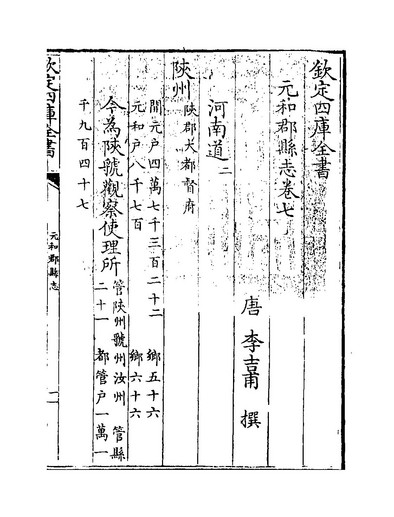 欽定四庫全書
元和郡縣志卷七
唐 李吉甫 撰
河南道二
陝州 陝郡大都督府
開元戶四萬七千三百二十二 鄉五十六
元和戶八千七百 鄉六十六
今為陝虢觀察使理所 管陝州虢州汝州 管縣
二十一 都管戶一萬一
千九百四十七
欽定四庫全書
元和郡縣志